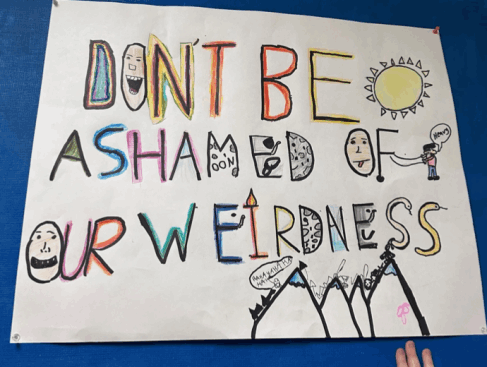 DON'T BE
ASHAMED OF
OUR WEIRDNESS